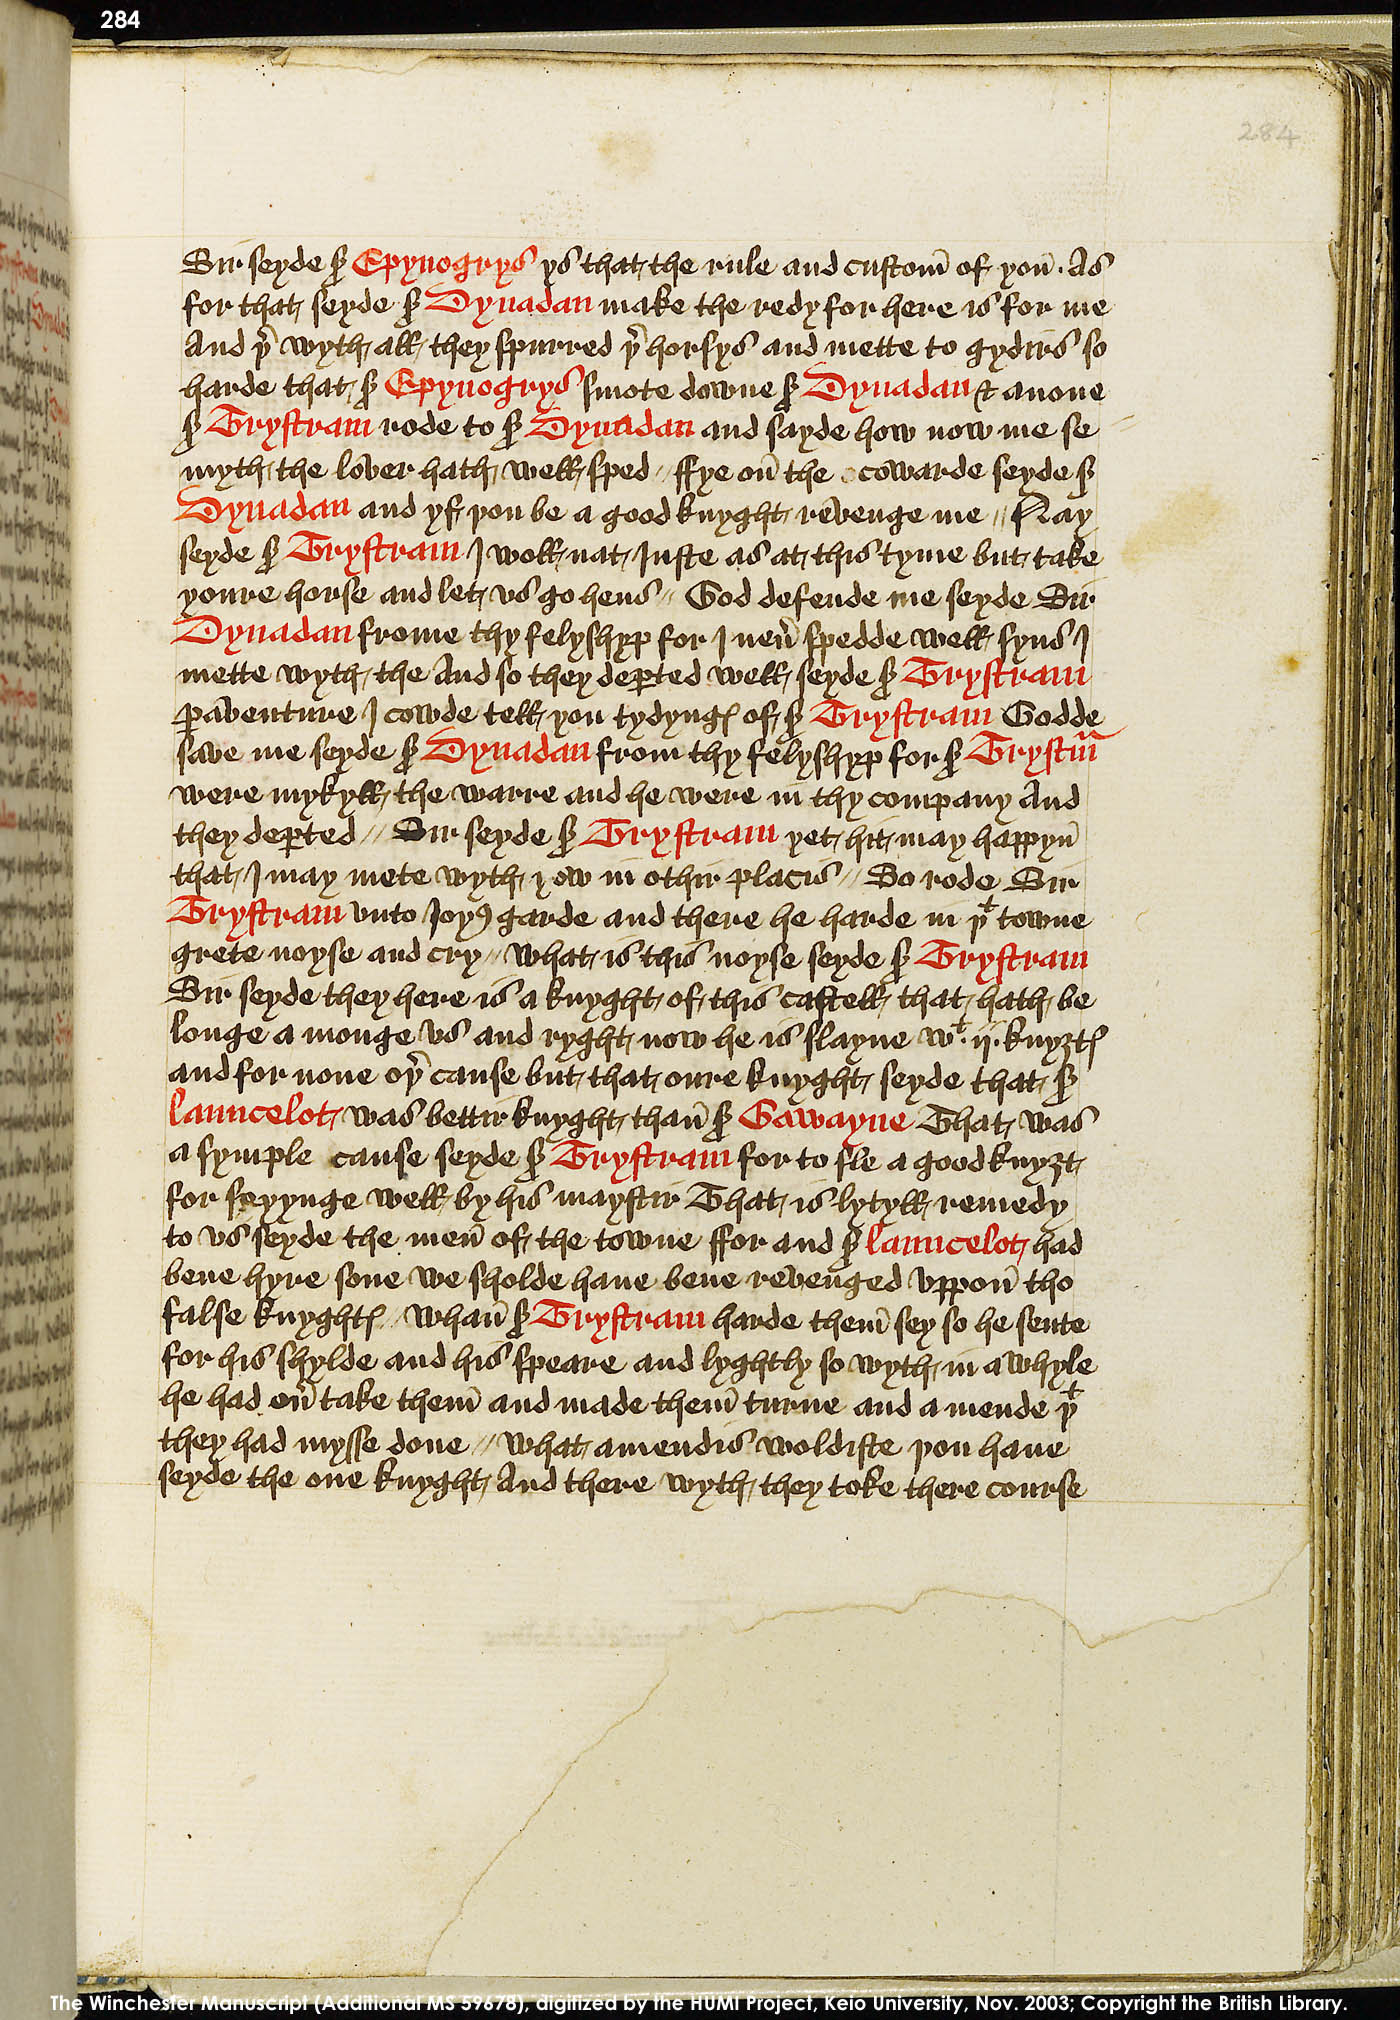 284
284
Sir seyde sr Epynogrys ys that the rule and custom̄ of you̅ . As
for that seyde sr Dynadan make the redy for here is for me
And þr wyth all they spurred þr horsys and mette to gydirs so
harde that sr Epynogrys smote downe sr Dynadan & anone
sr Trystram rode to sr Dynadan and sayde how now me se
myth the lover hath well sped // ffye on̄ the cowarde seyde sr
Dynadan and yf you be a good knyght revenge me // Nay
seyde sr Trystram I woll nat Juste as at this tyme but take
youre horse and let vs go hens // God defende me seyde Sir
Dynadan frome thy felyshyp for I neu̅ spedde well syns I
mette wyth the And so they deꝑted well seyde sr Trystram
ꝑaventure I cowde tell you tydyngꝭ of sr Trystram Godde
save me seyde sr Dynadan from thy felyshyp for sr Trystm̅
were mykyll the warre and he were in thy company And
they deꝑted // Sir seyde sr Trystram yet hit may happyn̄
that I may mete wyth yow in othir placis // So rode Sir
Trystram vnto Joyꝰ garde and there he harde in þt towne
grete noyse and cry // what is this noyse seyde sr Trystram
Sir seyde they here is a knyght of this castell that hath be
longe a monge vs and ryght now he is slayne wt .ij. knyztꝭ
and for none oþr cause but that oure knyght seyde that sr
launcelot was bettir knyght than̄ sr Gawayne That was
a symple cause seyde sr Trystram for to sle a good knyzt
for seyynge well by his maystir That is lytyll remedy
to vs seyde the men̄ of the towne ffor and sr launcelot had
bene hyre sone we sholde haue bene revenged vppon̄ tho
false knyghtꝭ // whan̄ sr Trystram harde them̄ sey so he sente
for his shylde and his speare and lyghtly so wyth in a whyle
he had ou̅take them̄ and made them̄ turne and a mende þt
they had mysse done // what amendis woldiste you haue
seyde the one knyght And there wyth they toke there course
The Winchester Manuscript (Additional MS 59678), digitized by the HUMI Project, Keio University, Nov. 2003; Copyright the British Library.